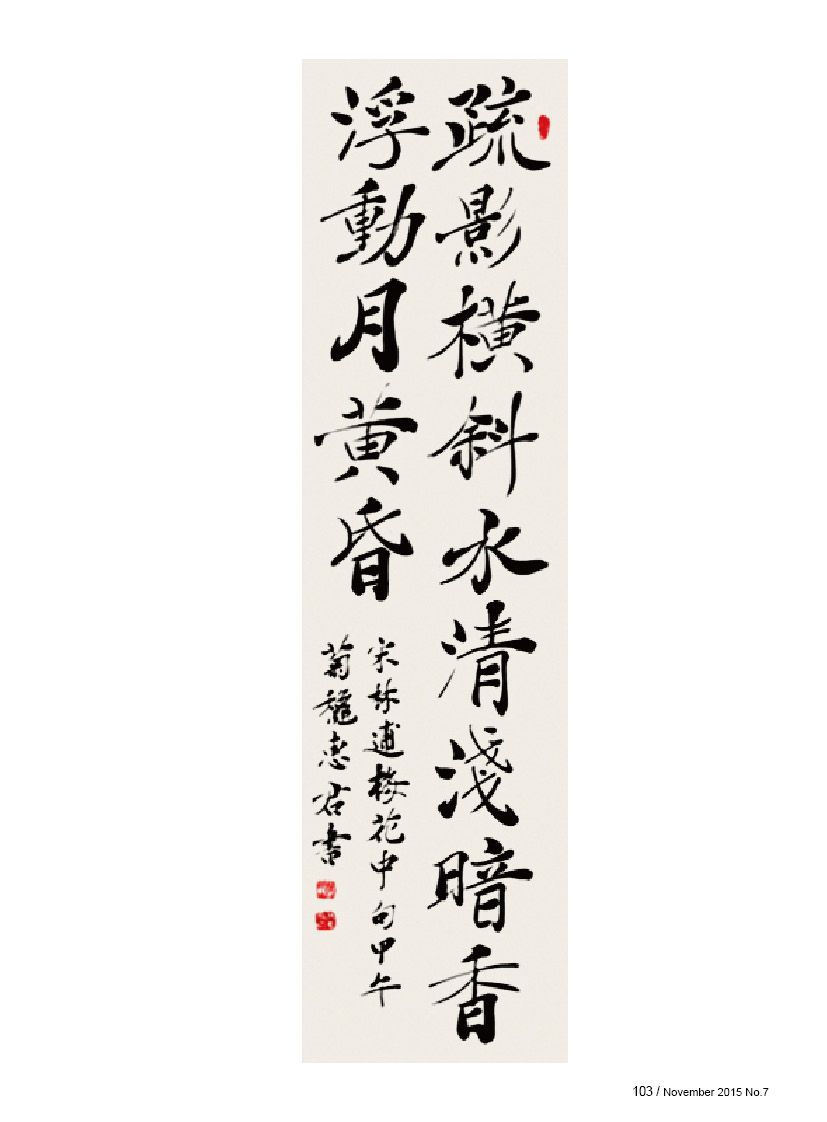 疏影橫斜水清淺暗香
浮動月黃昏
宋林逋梅花中句甲午
菊龍惠君書
103 / November 2015 No.7